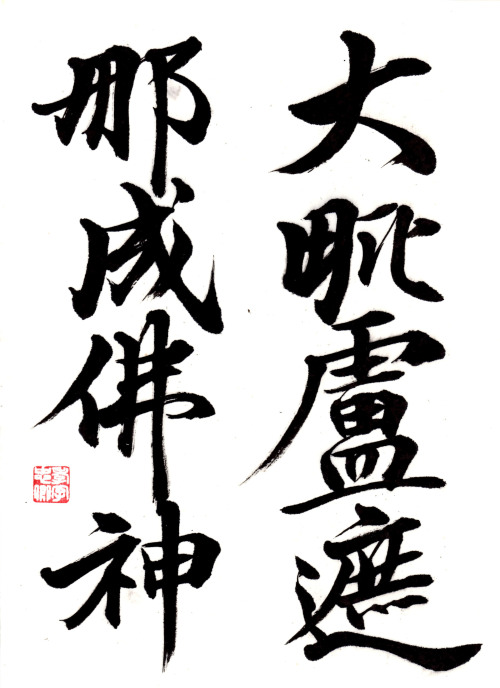 大毗盧遮
那成佛神